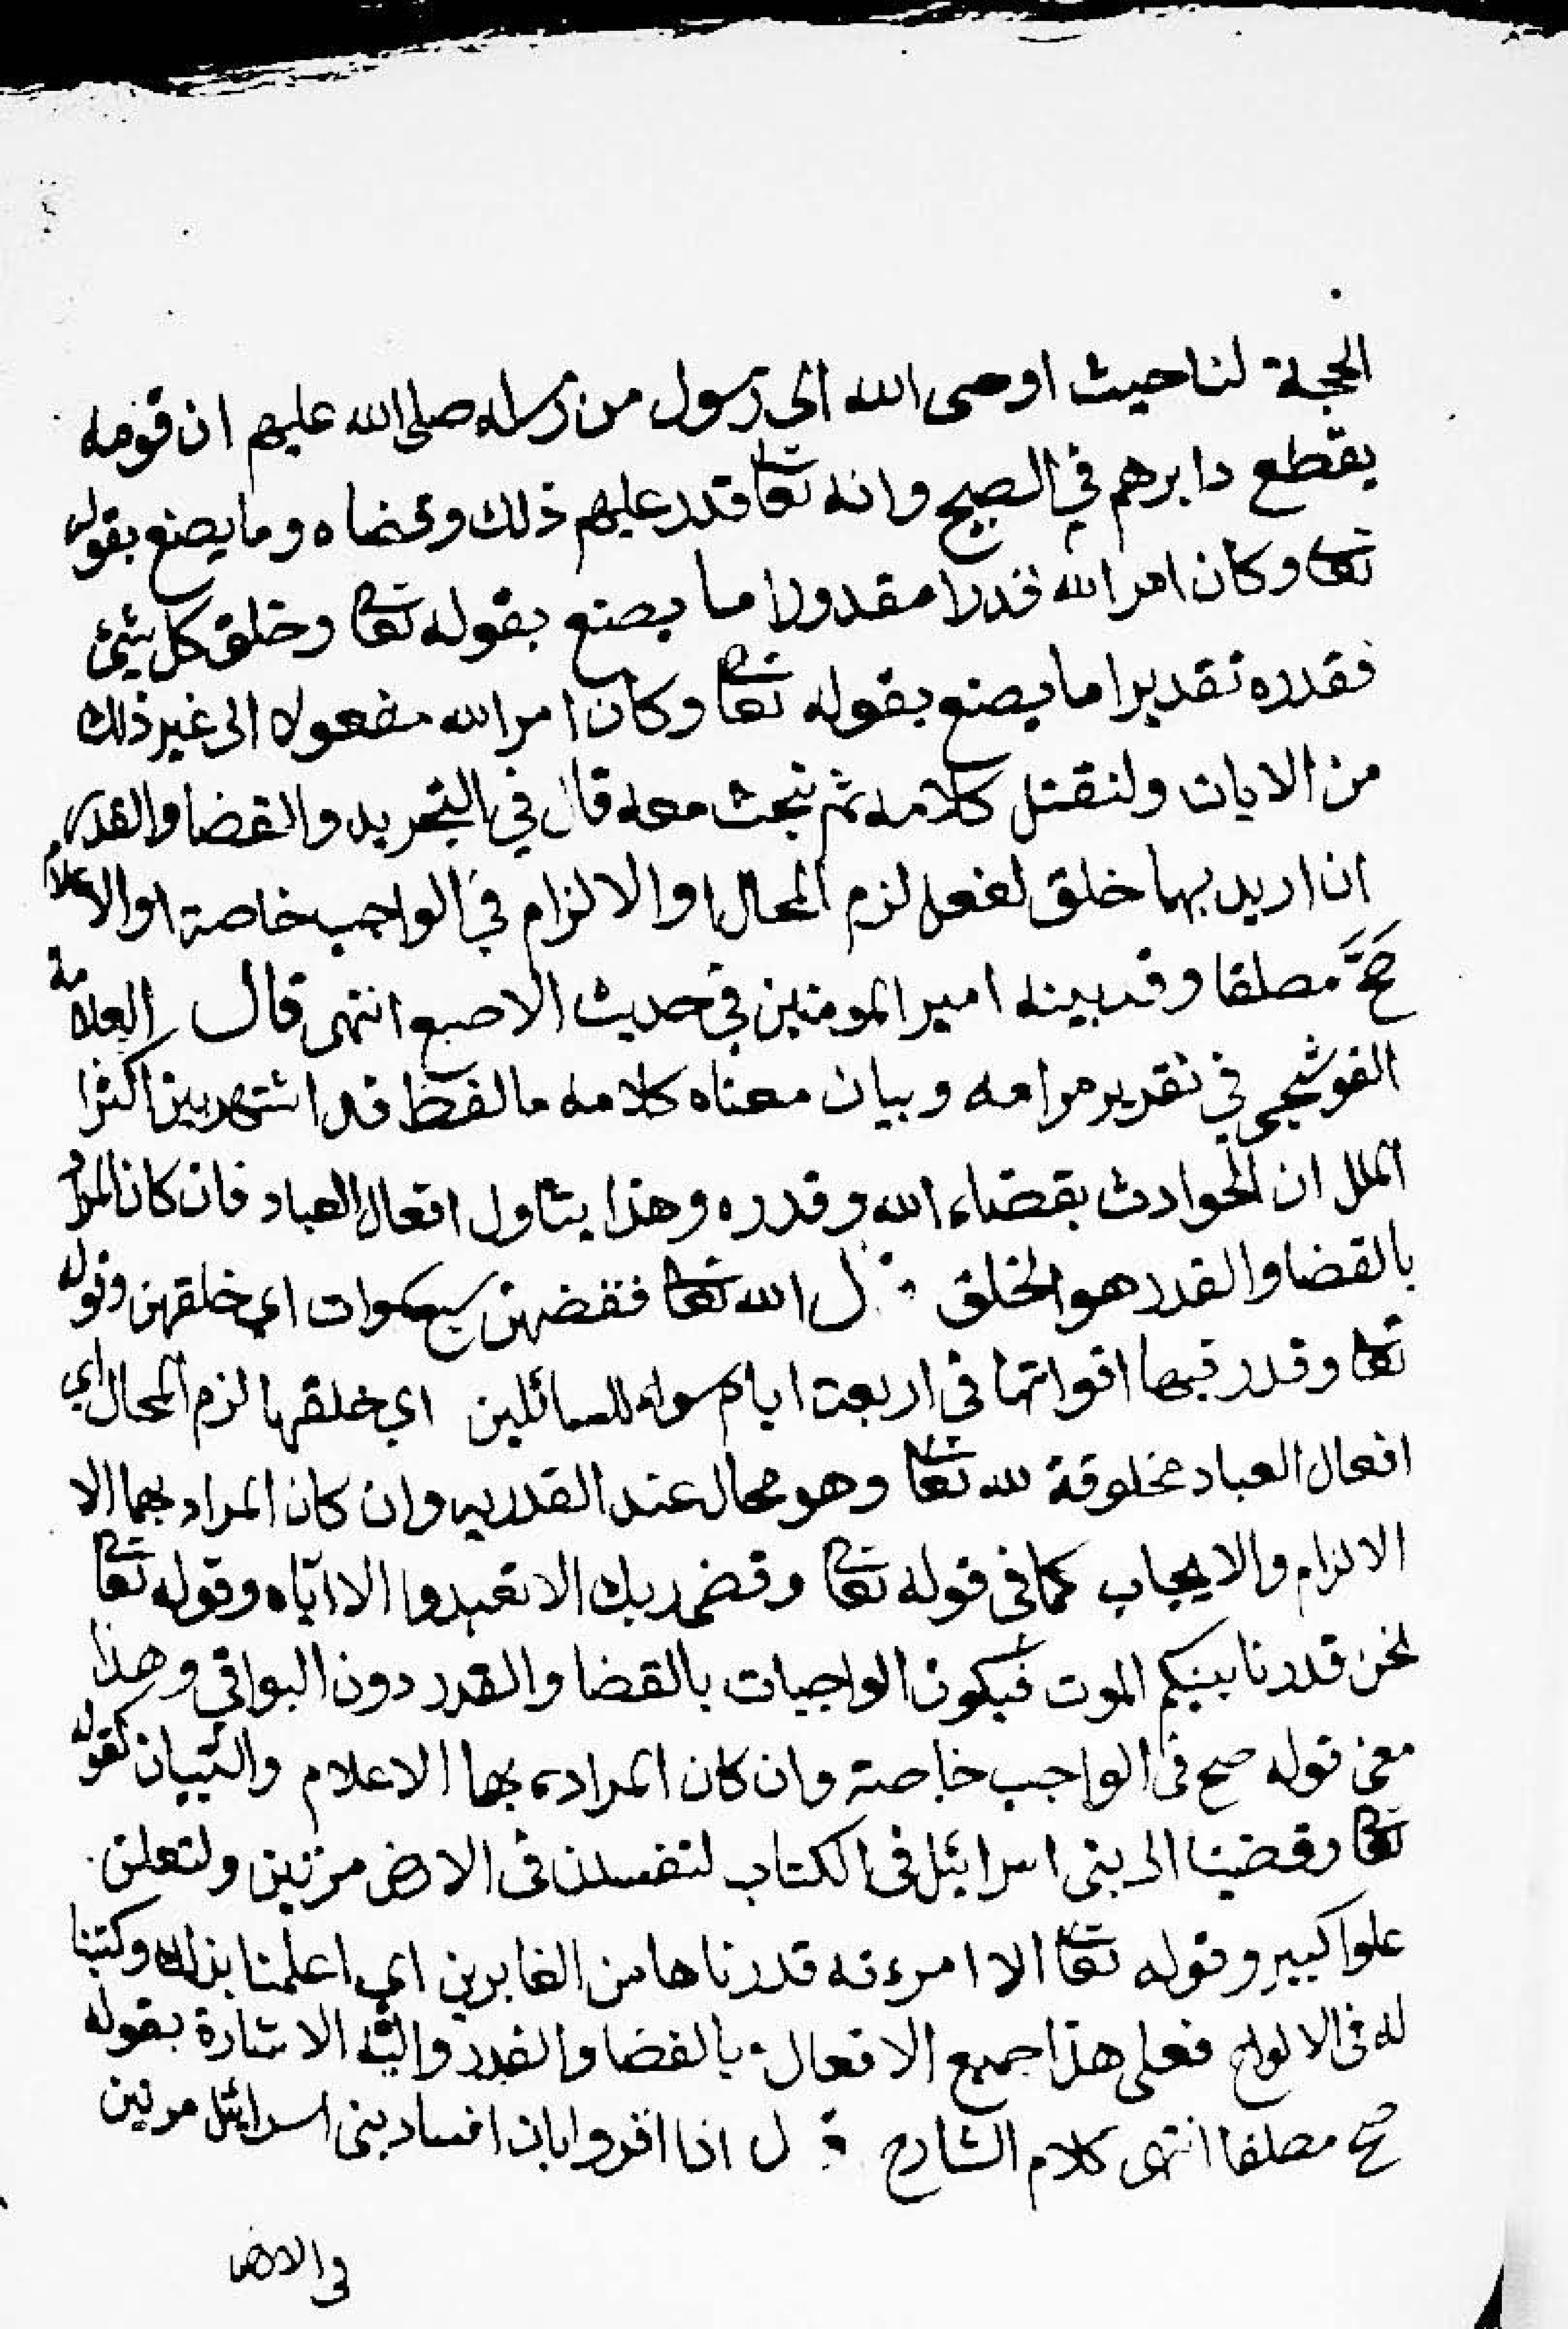 الحجة لنا حيث اوحى الله الى رسول من رسله صلى الله عليهم ان قومه
يقطع دابرهم في الصبح وانه تعا قدر عليهم ذلك وقضاه وما يصنع بقوله
تعا وكان امر الله قدرا مقدورا ما يصنع بقوله تعا وخلق كل شيئ
فقدره تقديرا ما يصنع بقوله تعا وكان امر الله مفعولا الى غير ذلك
من الايات ولنقتل كلامه ثم نبحث معه قال في التجريد والقضا والقدر
ان اريد بهما خلق لفعل لزم المحال او الالزام في الواجب خاصة او الاعلام
صح مطلقا وقد بينه امير المومنين في حديث الاصبع انتهى قال العلامة
القوشجى في تقرير مرامه وبيان معناه كلامه ما لفظ قد اشتهر بين اكثر
الملل ان الحوادث بقضاء الله وقدره وهذا يتناول افعال العباد فان كان المراد
بالقضا والقدر هو الخلق ل الله تعا فقضهن سبع سموات اي خلقهن وقوله
تعا وقدر فيها اقواتها في اربعت ايام سواء للسائلين اي خلقها لزم المحال اي
افعال العباد مخلوقة لله تعا وهو محال عند القدريه وان كان المراد بهما الا
الالزام والايجاب كما في قوله تعا وقضى ربك الا تعبدوا الا اياه وقوله تعا
نحن قدرنا بينكم الموت فيكون الواجبات بالقضا والقدر دون البواقي وهذا
معنى قوله صح في الواجب خاصة وان كان المراد بهما الاعلام والتبيان كقوله
تعا وقضينا الى بنى اسرائيل فى الكتاب لتفسدن فى الارض مرتين ولتعلن
علوا كبير وقوله تعا الا امرءته قدرناها من الغابرين اي اعلمنا بذلك وكتبنا
له فى الالوح فعلى هذا جميع الافعال بالقضا والقدر واليه الاشارة بقوله
صح مطلقا انتهى كلام الشارح ل اذا اقروا بان افساد بنى اسرائيل مرتين
فى الارض